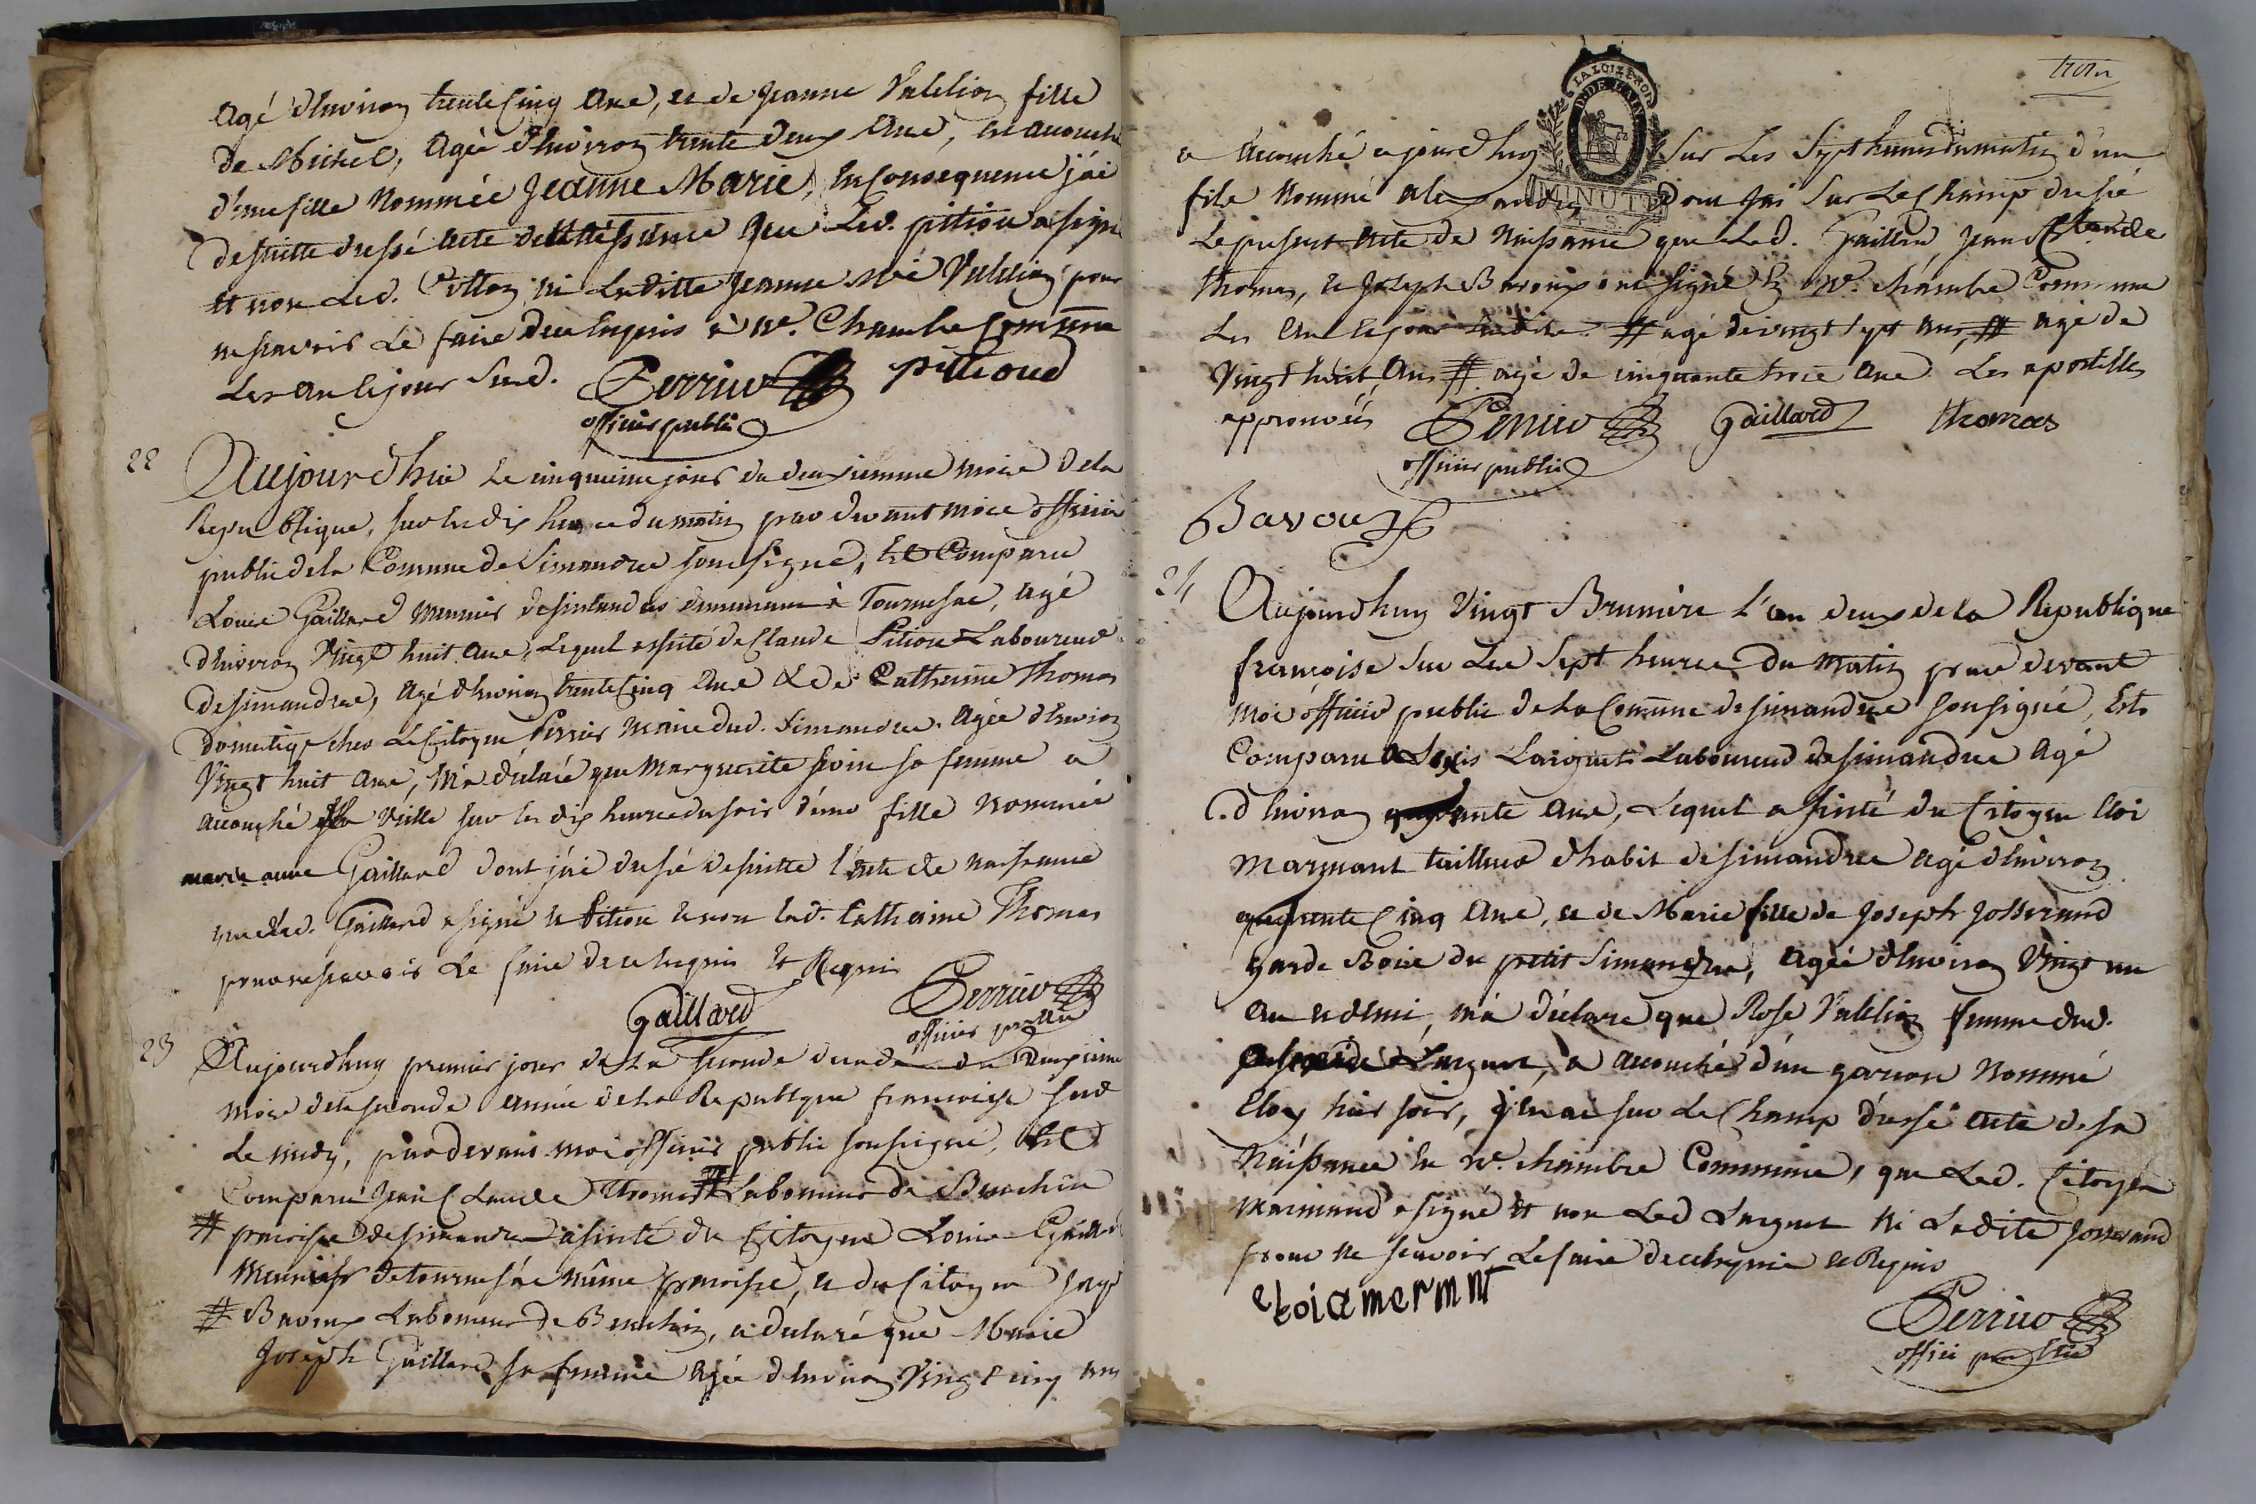 agé d'huviron trente Cinq ans, et de Jeanne Valelion fille
de Michel, agée d'huviron trente deux ans, est accouché
d'une fille nommée Jeanne Marie, En Consequence j'ai
desuitte dressé acte de naissance que led. pitiou a signé
et non led. Villon ni laditte Jeanne Valelion pour
ne scavoir le faire de ce enquis à ne. Chambre Commune
les an et jour susd. Perrier pittioud
officier public
22 Aujourdhui le cinquieme jour du deuxiemme mois dela
Republique, sur les dix heures du matin par devant moi officier
public dela Comune de Simandre sousigné, Est Comparu
Louis Gaillard meunier de simandres demeurant à Tournesac, agé
d'huviron Vingt huit ans, lequel assisté de Claude Pitiou Laboureur
de simandre, agé d'huviron trente Cinq ans & de Catherine Thomas
domestique ches le Citoyen Perrier maire dud. Simandre. agée d'huviron
Vingt huit ans, m'a déclaré que Marguerite sa femme a
acouché la Veille sur les dix heures du soir d'une fille nommée
marie anne Gaillard dont j'ai dressé desuitte l'acte de naissance
que led. Gaillard a signé et Pitiou et non lad. Catherine Thomas
pour ne scavoir le faire de ce enquis et Requis
Gaillard Perrier
officier public
23 Aujourdhuy premier jour dela seconde decade du deuxieme
mois dela seconde année dela Republique francoise sur
le midy, par devant moi officier public sousigné, Est
Comparu Jean Claude Thomas # Laboureur de Beuchin
# paroisse de simandre assisté du Citoyen Louis Gaillard
Meunier de tournesac même paroisse, et du Citoyen
# Bavoux Laboureur de Beuchin, a déclaré que Marie
Joseph Gaillard sa femme agée d'huviron Vingt cinq ans
trois
LA LOI LE ROI
MINUTE
a acouché ajourdhuy sur les Sept heures du matin d'un
fils nommé alexandre, dont jai sur le Champ dressé
le present acte de naissance que led. Gaillard, Jean Claude
thomas, et Joseph Bavoux ont signé En ne. chambre Commune
les an et jour susdits. # agé de vingt sept ans, # agé de
Vingt huit ans # agé de cinquante trois ans les apostilles
approuvées Perrier Gaillard thomas
officier public
Bavoux
24 Aujourdhuy Vingt Brumère l'an deux de la Republique
françoise sur les Sept heures du matin par devant
moi officier public de la Comune de simandre sousigné, Est
Comparu Alexis Laboureur de simandre agé
d'huviron ans, lequel assisté du Citoyen Eloi
Marmant tailleur d'habit de simandre agé d'huviron
Cinq ans, et de Marie fille de Joseph Josserand
garde Bois du petit Simandre, agée d'huviron Vingt un
an et demi, m'a déclaré que Rose Valelion femme dud.
Larguet, a accouché d'un garçon nommé
Eloy hier soir, j'en ai sur le Champ dressé acte de sa
naissance En ne. chambre Commune, que led. Citoyen
marmand a signé et non led Larguet ni ladite Josserand
pour ne scavoir le faire de ce enquis et Requis
eloiamermnt
Perrier
officier public